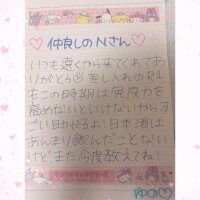 仲良しのNさん
いつも遠くから来てくれてあ
りがとう 差し入れのR1
もこの時期は免疫力を
高めないといけないからす
ごい助かるお 日本酒は
あんまり飲んだことない
けどまた今度教えてね!